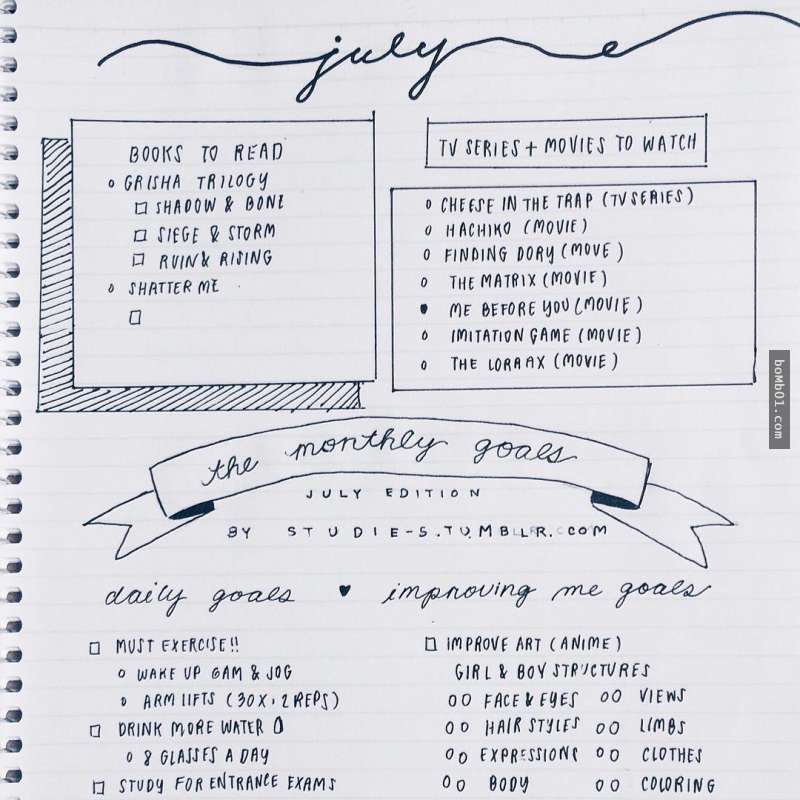 july
BOOKS TO READ
GRISHA TRILOGY
SHADOW & BONE
SIEGE & STORM
RUIN & RISING
SHATTER ME
TV SERIES + MOVIES TO WATCH
CHEESE IN THE TRAP (TV SERIES)
HACHIKO (MOVIE)
FINDING DORY (MOVE)
THE MATRIX (MOVIE)
ME BEFORE YOU (MOVIE)
IMITATION GAME (MOVIE)
THE LORAX (MOVIE)
bomb01.com
the monthly goals
JULY EDITION
BY STUDIE-S.TUMBLR.COM
daily goals ♥ improving me goals
MUST EXERCISE!!
WAKE UP 6AM & JOG
ARM LIFTS (30X, 2 REPS)
DRINK MORE WATER
8 GLASSES A DAY
STUDY FOR ENTRANCE EXAMS
IMPROVE ART (ANIME)
GIRL & BOY STRUCTURES
FACE & EYES
VIEWS
HAIR STYLES
LIMBS
EXPRESSIONS
CLOTHES
BODY
COLORING